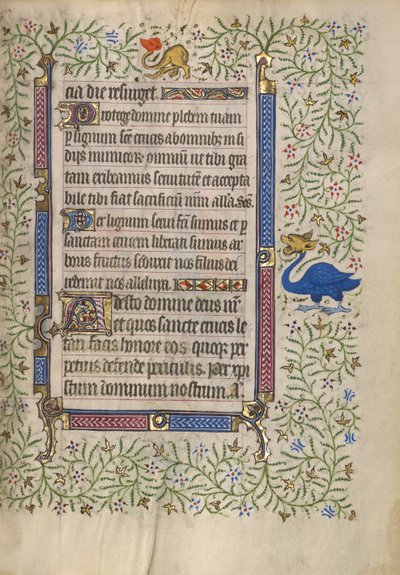 cia die resurget.
Protege domine plebem tuam
p signum scē crucis ab omnibus in si
dijs inimicoꝝ omniū ut tibi gra
tam exibeamus seruitutē et accepta
bile tibi fiat sacrificiū nrm alla. Ps.
Per lignum serui fcī sumus et p
sanctam crucem liberati sumus ar
boris fructus seduxit nos filius dei
redemit nos alleluya.
Adesto domine deus nr̄
et quos sancte crucis le
tari facis honore eos quoque per
petuis defende periculis. Per xpi
stum dominum nostrum. A